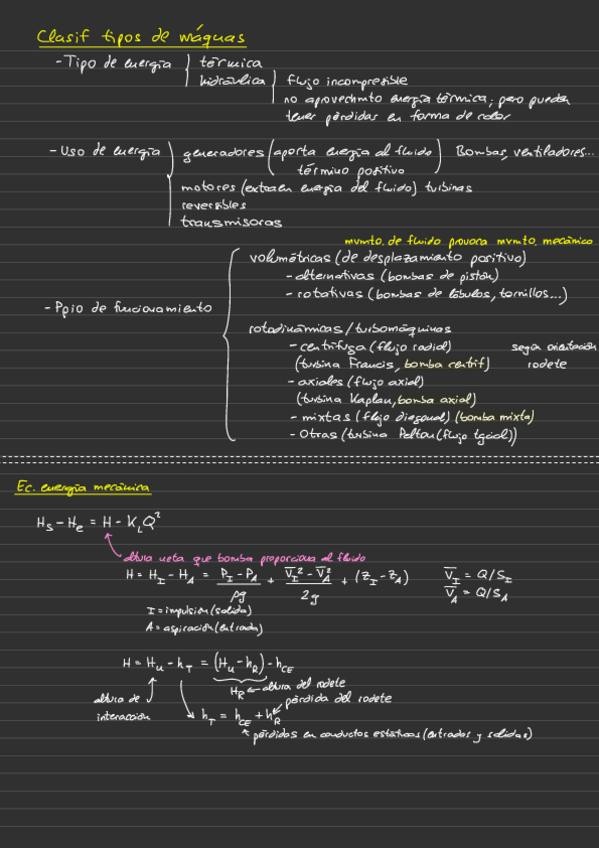 Clasif tipos de máquas
- Tipo de energía térmica
hidráulica flujo incompresible
no aprovechmto energía térmica, pero pueden
tener pérdidas en forma de calor
- Uso de energía generadores (aporta energía al fluido) Bombas, ventiladores...
término positivo
motores (extraen energía del fluido) turbinas
reversibles
transmisoras
mvmto. de fluido provoca mvmto. mecánico
volumétricas (de desplazamiento positivo)
- alternativas (bombas de pistón)
- rotativas (bombas de lóbulos, tornillos...)
- Ppio de funcionamiento
rotodinámicas/turbomáquinas
- centrífuga (flujo radial) según orientación
(turbina Francis, bomba centrif) rodete
- axiales (flujo axial)
(turbina Kaplan, bomba axial)
- mixtas (flujo diagonal) (bomba mixta)
- Otras (turbina Pelton (flujo tgcial))
Ec. energía mecánica
Hs - He = H - K_L Q²
altura neta que bomba proporciona al fluido
H = H_I - H_A = (P_I - P_A)/ρg + (V̅_I² - V̅_A²)/2g + (z_I - z_A) V̅_I = Q/S_I
V̅_A = Q/S_A
I = impulsión (salida)
A = aspiración (entrada)
H = H_u - h_T = (H_u - h_R) - h_CE
H_R ← altura del rodete
altura de interacción pérdida del rodete
h_T = h_CE + h_R
pérdidas en conductos estáticos (entradas y salidas)